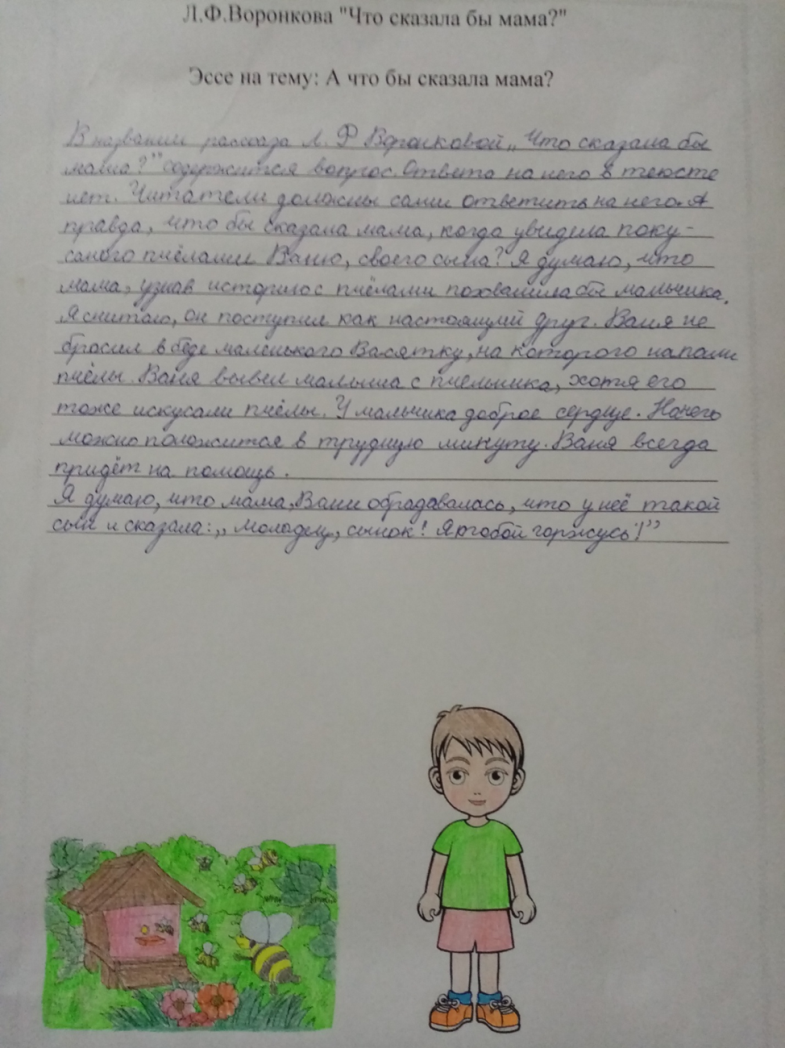 Л.Ф.Воронкова "Что сказала бы мама?"
Эссе на тему: А что бы сказала мама?
В названии рассказа Л. Ф Воронковой „Что сказала бы
мама?" содержится вопрос. Ответа на него в тексте
нет. Читатели должны сами ответить на него. А
правда, что бы сказала мама, когда увидела поку-
санного пчёлами Ваню, своего сына? Я думаю, что
мама, узнав историю с пчёлами похвалила бы мальчика.
Я считаю, он поступил как настоящий друг. Ваня не
бросил в беде маленького Васятку, на которого напали
пчёлы. Ваня вывел малыша с пчельника, хотя его
тоже искусали пчёлы. У мальчика доброе сердце. На него
можно положится в трудную минуту. Ваня всегда
придёт на помощь.
Я думаю, что мама, Вани обрадавалась, что у неё такой
сын и сказала: „Молодец, сынок! Я тобой горжусь!"